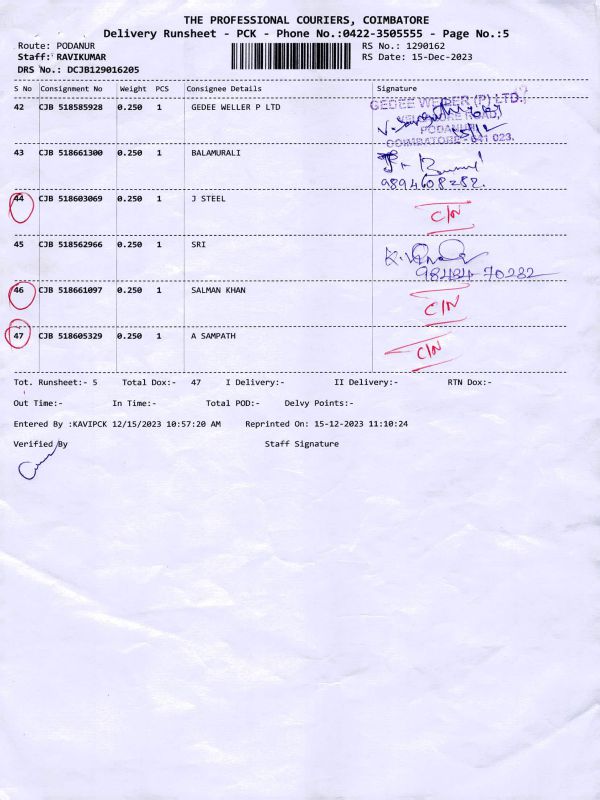 THE PROFESSIONAL COURIERS, COIMBATORE
Delivery Runsheet - PCK - Phone No.:0422-3505555 - Page No.:5
Route: PODANUR RS No.: 1290162
Staff: RAVIKUMAR RS Date: 15-Dec-2023
DRS No.: DCJB129016205
S No Consignment No Weight PCS Consignee Details Signature
42 CJB 518585928 0.250 1 GEDEE WELLER P LTD
GEDEE WEILER (P) LTD.,
PODANUR
COIMBATORE - 641 023.
15/12
43 CJB 518661300 0.250 1 BALAMURALI
9894608282.
44 CJB 518603069 0.250 1 J STEEL C/N
45 CJB 518562966 0.250 1 SRI
98424 70232
46 CJB 518661097 0.250 1 SALMAN KHAN C/N
47 CJB 518605329 0.250 1 A SAMPATH C/N
Tot. Runsheet:- 5 Total Dox:- 47 I Delivery:- II Delivery:- RTN Dox:-
Out Time:- In Time:- Total POD:- Delvy Points:-
Entered By :KAVIPCK 12/15/2023 10:57:20 AM Reprinted On: 15-12-2023 11:10:24
Verified By Staff Signature